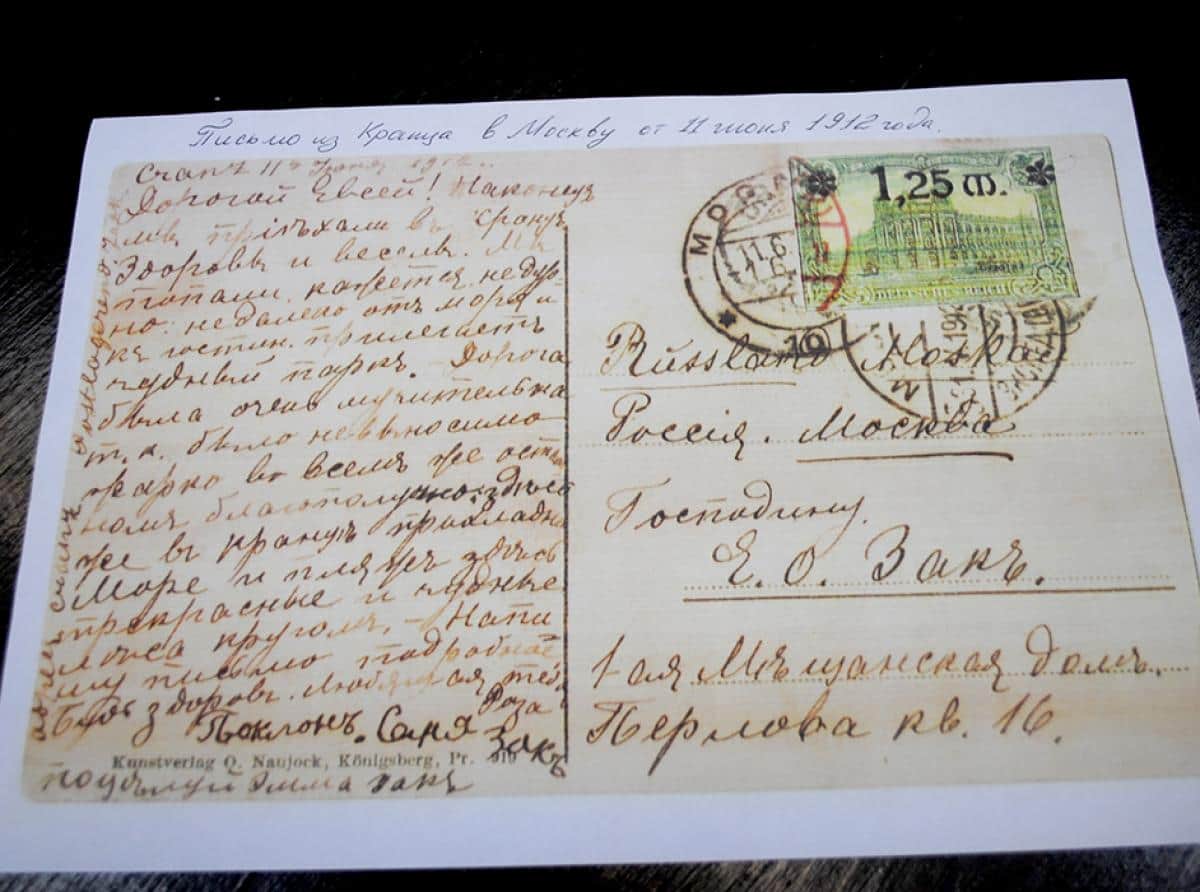 Письмо из Кранца в Москву от 11 июня 1912 года.
Cranz 11 Іюня 1912.
Дорогой Евсей! Наконецъ
мы пріѣхали въ Кранцъ
Здоровы и веселы. Мы
попали, кажется, недур
но. недалеко отъ моря и
къ гостин. прилегаетъ
чудный паркъ. Дорога
была очень мучительна
т. к. было невыносимо
жарко во всемъ же осталь
номъ благополучно. здѣсь
же въ Кранцѣ прохладно
Море и пляжъ здѣсь
прекрасные и чудные
лѣса кругомъ. Напи
шу письмо подробнѣе
Будь здоровъ. Любящая тебя
Роза
Поклонъ. Саня Закъ
Kunstverlag Q. Naujock, Königsberg, Pr.
поцѣлуи Эмма Закъ
адресъ Cranz postlagernd
1,25 m.
МОС
11.6
19
Russland Moskau
Россія. Москва
Господину
Е. О. Закъ.
1-ая Мѣщанская домъ
Перлова кв. 16.